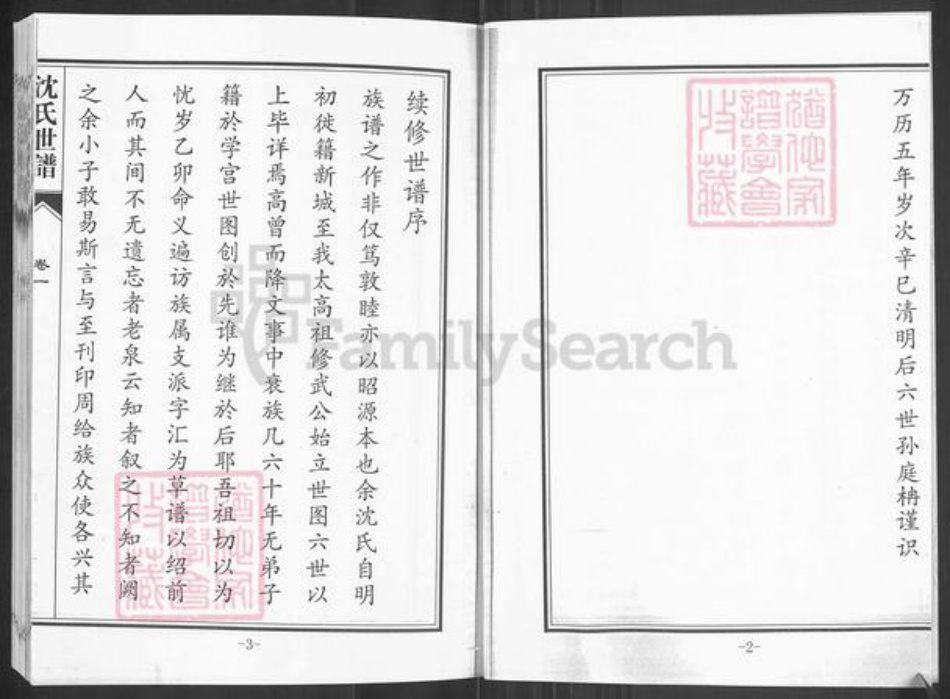 万历五年岁次辛巳清明后六世孙庭楠谨识
-2-
续修世谱序
族谱之作非仅笃敦睦亦以昭源本也余沈氏自明
初徙籍新城至我太高祖修武公始立世图六世以
上毕详焉高曾而降文事中衰族几六十年无弟子
籍於学宫世图创於先谁为继於后耶吾祖切以为
忧岁乙卯命义遍访族属支派字汇为草谱以绍前
人而其间不无遗忘者老泉云知者叙之不知者阙
之余小子敢易斯言与至刊印周给族众使各兴其
沈氏世譜
卷一
-3-
FamilySearch